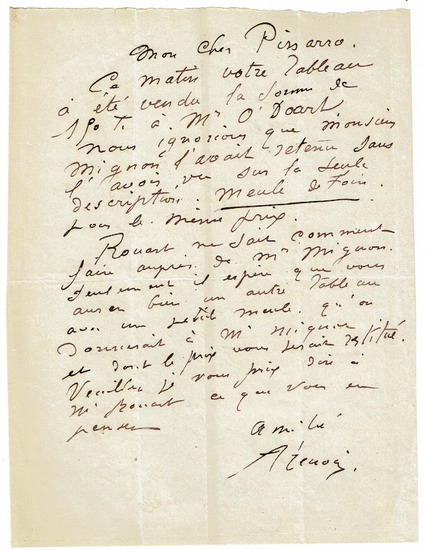 Mon cher Pissarro.
Ce matin votre Tableau
à été vendu la somme de
à Mr O'Doart
Nous ignorions que monsieur
Mignon l'avait retenu sans
l'avoir vu sur la seule
description. Meule de Foin.
pour le même prix.
Rouart ne sait comment
faire auprès de Mr Mignon.
Seulement il espère que vous
aurez bien un autre Tableau
avec un petit meule. qu'on
donnerait à Mr Mignon
et dont le prix vous serait
Veuillez je vous prie dire à
Mr Rouart ce que vous en
pensez
amitié
A Renoir.